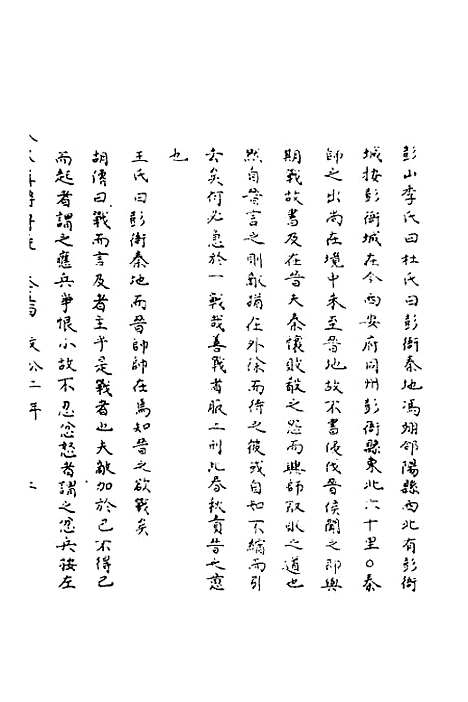 彭山李氏曰杜氏曰彭衙秦地馮翊郃陽縣西北有彭衙
城按彭衙城在今西安府同州彭衙縣東北六十里○秦
師之出尚在境中未至晋地故不書侵伐晋侯聞之即與
期戰故書及在晋夫秦懷敗殽之怨而興師取敗之道也
然自晋言之則敵猶在外徐而待之彼或自知不縮而引
去矣何必急於一戰哉善戰者服上刑此春秋責晋之意
也
王氏曰彭衙秦地而晋師師在焉知晋之欲戰矣
胡傳曰戰而言及者主乎是戰者也夫敵加於己不得已
而起者謂之應兵爭恨小故不忍忿怒者謂之忿兵按左
文公二年